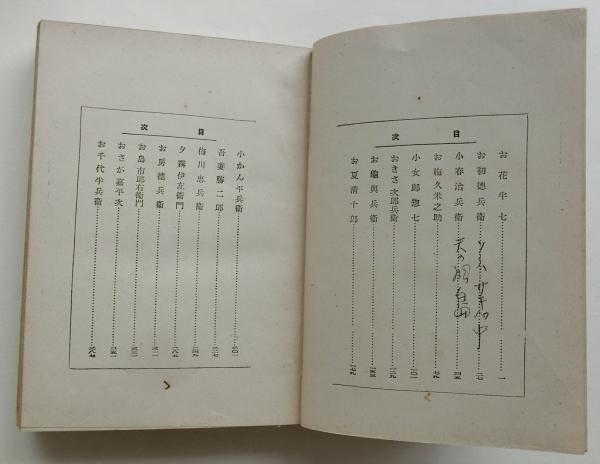 目次
お花半七……一
お初徳兵衛……二七
小春治兵衛……四五
お梅久米之助……七九
小女郎惣七……一〇一
おきさ次郎兵衛……一二九
お亀與兵衛……一五三
お夏清十郎……一七九
目次
小かん平兵衛……二〇一
吾妻勝二郎……二二七
梅川忠兵衛……二四九
夕霧伊左衛門……二八七
お房徳兵衛……三一一
お島市郎右衛門……三三一
おさが嘉平次……三五一
お千代半兵衛……三八七